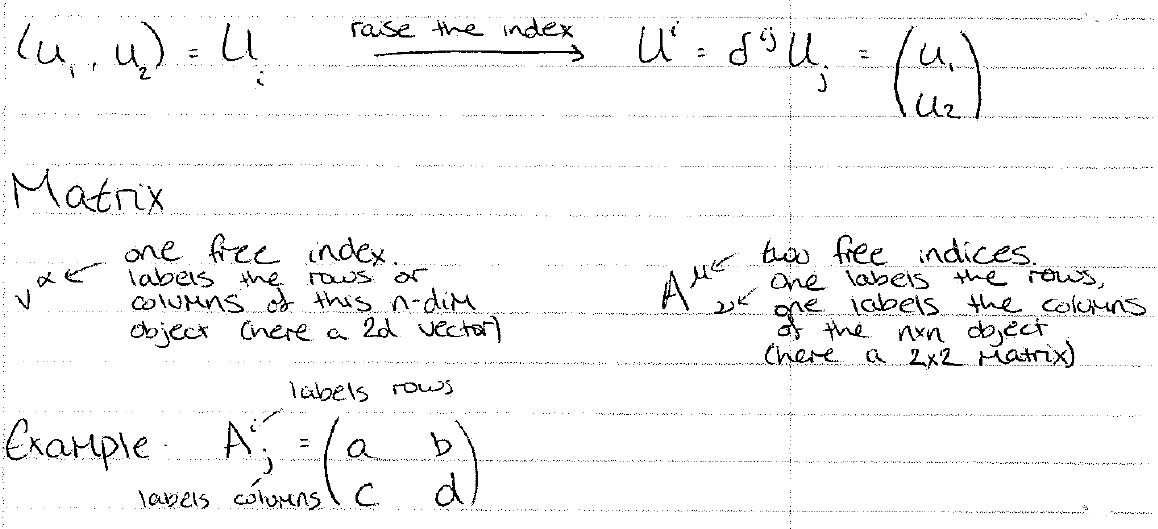 (u₁, u₂) = Uᵢ raise the index → Uⁱ = δⁱʲUⱼ = (u₁
u₂)
Matrix
v^α ← one free index.
labels the rows or
columns of this n-dim
object (here a 2d vector)
A^μ_ν ← two free indices.
← one labels the rows,
one labels the columns
of the n×n object
(here a 2x2 Matrix)
labels rows
Example. Aⁱⱼ = (a b
labels columns c d)